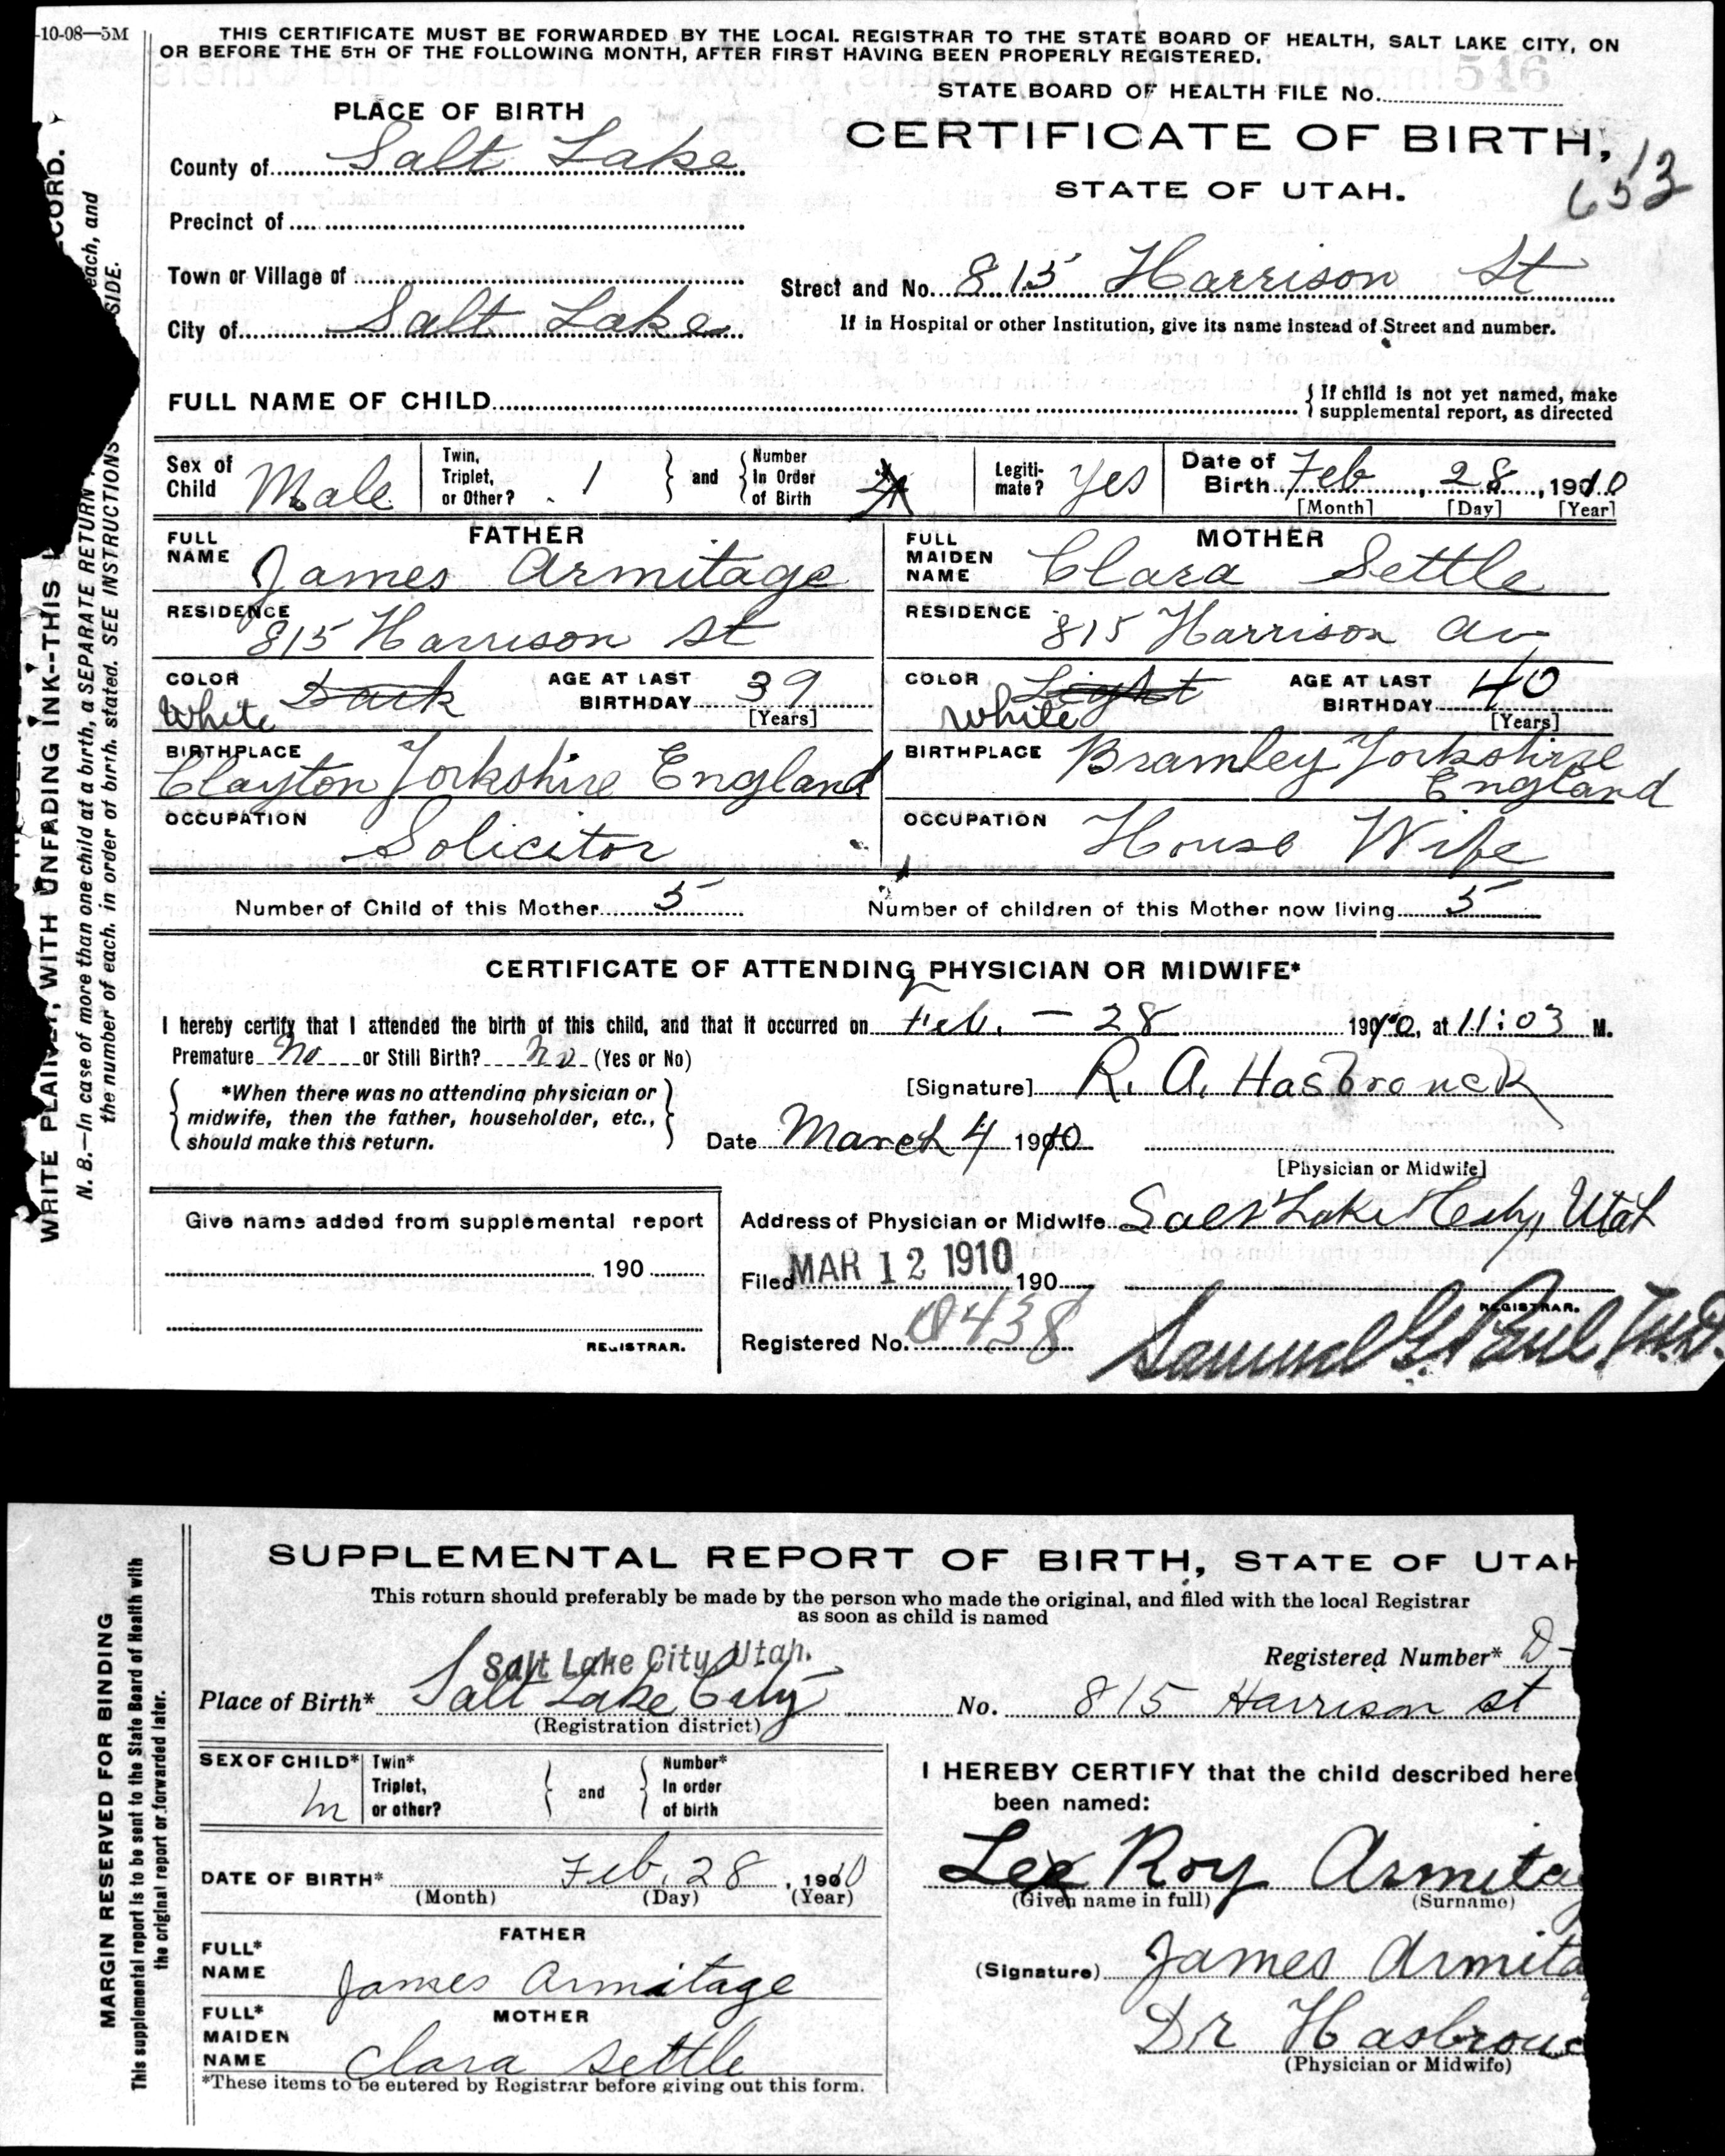 -10-08—5M
THIS CERTIFICATE MUST BE FORWARDED BY THE LOCAL REGISTRAR TO THE STATE BOARD OF HEALTH, SALT LAKE CITY, ON
OR BEFORE THE 5TH OF THE FOLLOWING MONTH, AFTER FIRST HAVING BEEN PROPERLY REGISTERED.
516
STATE BOARD OF HEALTH FILE No.
PLACE OF BIRTH
CERTIFICATE OF BIRTH,
STATE OF UTAH.
13
653
County of Salt Lake
Precinct of
Town or Village of
Street and No. 815 Harrison St
City of Salt Lake
If in Hospital or other Institution, give its name instead of Street and number.
FULL NAME OF CHILD
If child is not yet named, make
supplemental report, as directed
Sex of Child Male
Twin, Triplet, or Other? 1
and
Number In Order of Birth
Legiti-mate? Yes
Date of Birth Feb 28, 1910
[Month] [Day] [Year]
FATHER
FULL NAME James Armitage
MOTHER
FULL MAIDEN NAME Clara Settle
RESIDENCE 815 Harrison St
RESIDENCE 815 Harrison Av
COLOR Dark White
AGE AT LAST BIRTHDAY 39 [Years]
COLOR Light White
AGE AT LAST BIRTHDAY 40 [Years]
BIRTHPLACE Clayton Yorkshire England
BIRTHPLACE Bramley Yorkshire England
OCCUPATION Solicitor
OCCUPATION House Wife
Number of Child of this Mother 5
Number of children of this Mother now living 5
CERTIFICATE OF ATTENDING PHYSICIAN OR MIDWIFE*
I hereby certify that I attended the birth of this child, and that it occurred on Feb. – 28 1910, at 11:03 M.
Premature No or Still Birth? No (Yes or No)
*When there was no attending physician or
midwife, then the father, householder, etc.,
should make this return.
[Signature] R. A. Hasbrouck
Date March 4 1910
[Physician or Midwife]
Give name added from supplemental report
190
REGISTRAR.
Address of Physician or Midwife Salt Lake City, Utah
Filed MAR 12 1910 190
REGISTRAR.
Registered No. 0438
Samuel G. Paul M.D.
WRITE PLAINLY, WITH UNFADING INK--THIS
CORD.
N. B.—In case of more than one child at a birth, a SEPARATE RETURN
each, and
the number of each, in order of birth, stated. SEE INSTRUCTIONS
SIDE.
SUPPLEMENTAL REPORT OF BIRTH, STATE OF UTAH
This return should preferably be made by the person who made the original, and filed with the local Registrar
as soon as child is named
Salt Lake City, Utah.
Registered Number* D-
Place of Birth* Salt Lake City
(Registration district)
No. 815 Harrison St
SEX OF CHILD* M
Twin* Triplet, or other?
and
Number* In order of birth
I HEREBY CERTIFY that the child described here
been named:
Lee Roy Armitag
(Given name in full) (Surname)
DATE OF BIRTH* Feb. 28, 1910
(Month) (Day) (Year)
FATHER
FULL* NAME James Armitage
(Signature) James Armita
MOTHER
FULL* MAIDEN NAME Clara Settle
Dr Hasbrouc
(Physician or Midwife)
*These items to be entered by Registrar before giving out this form.
MARGIN RESERVED FOR BINDING
This supplemental report is to be sent to the State Board of Health with
the original report or forwarded later.